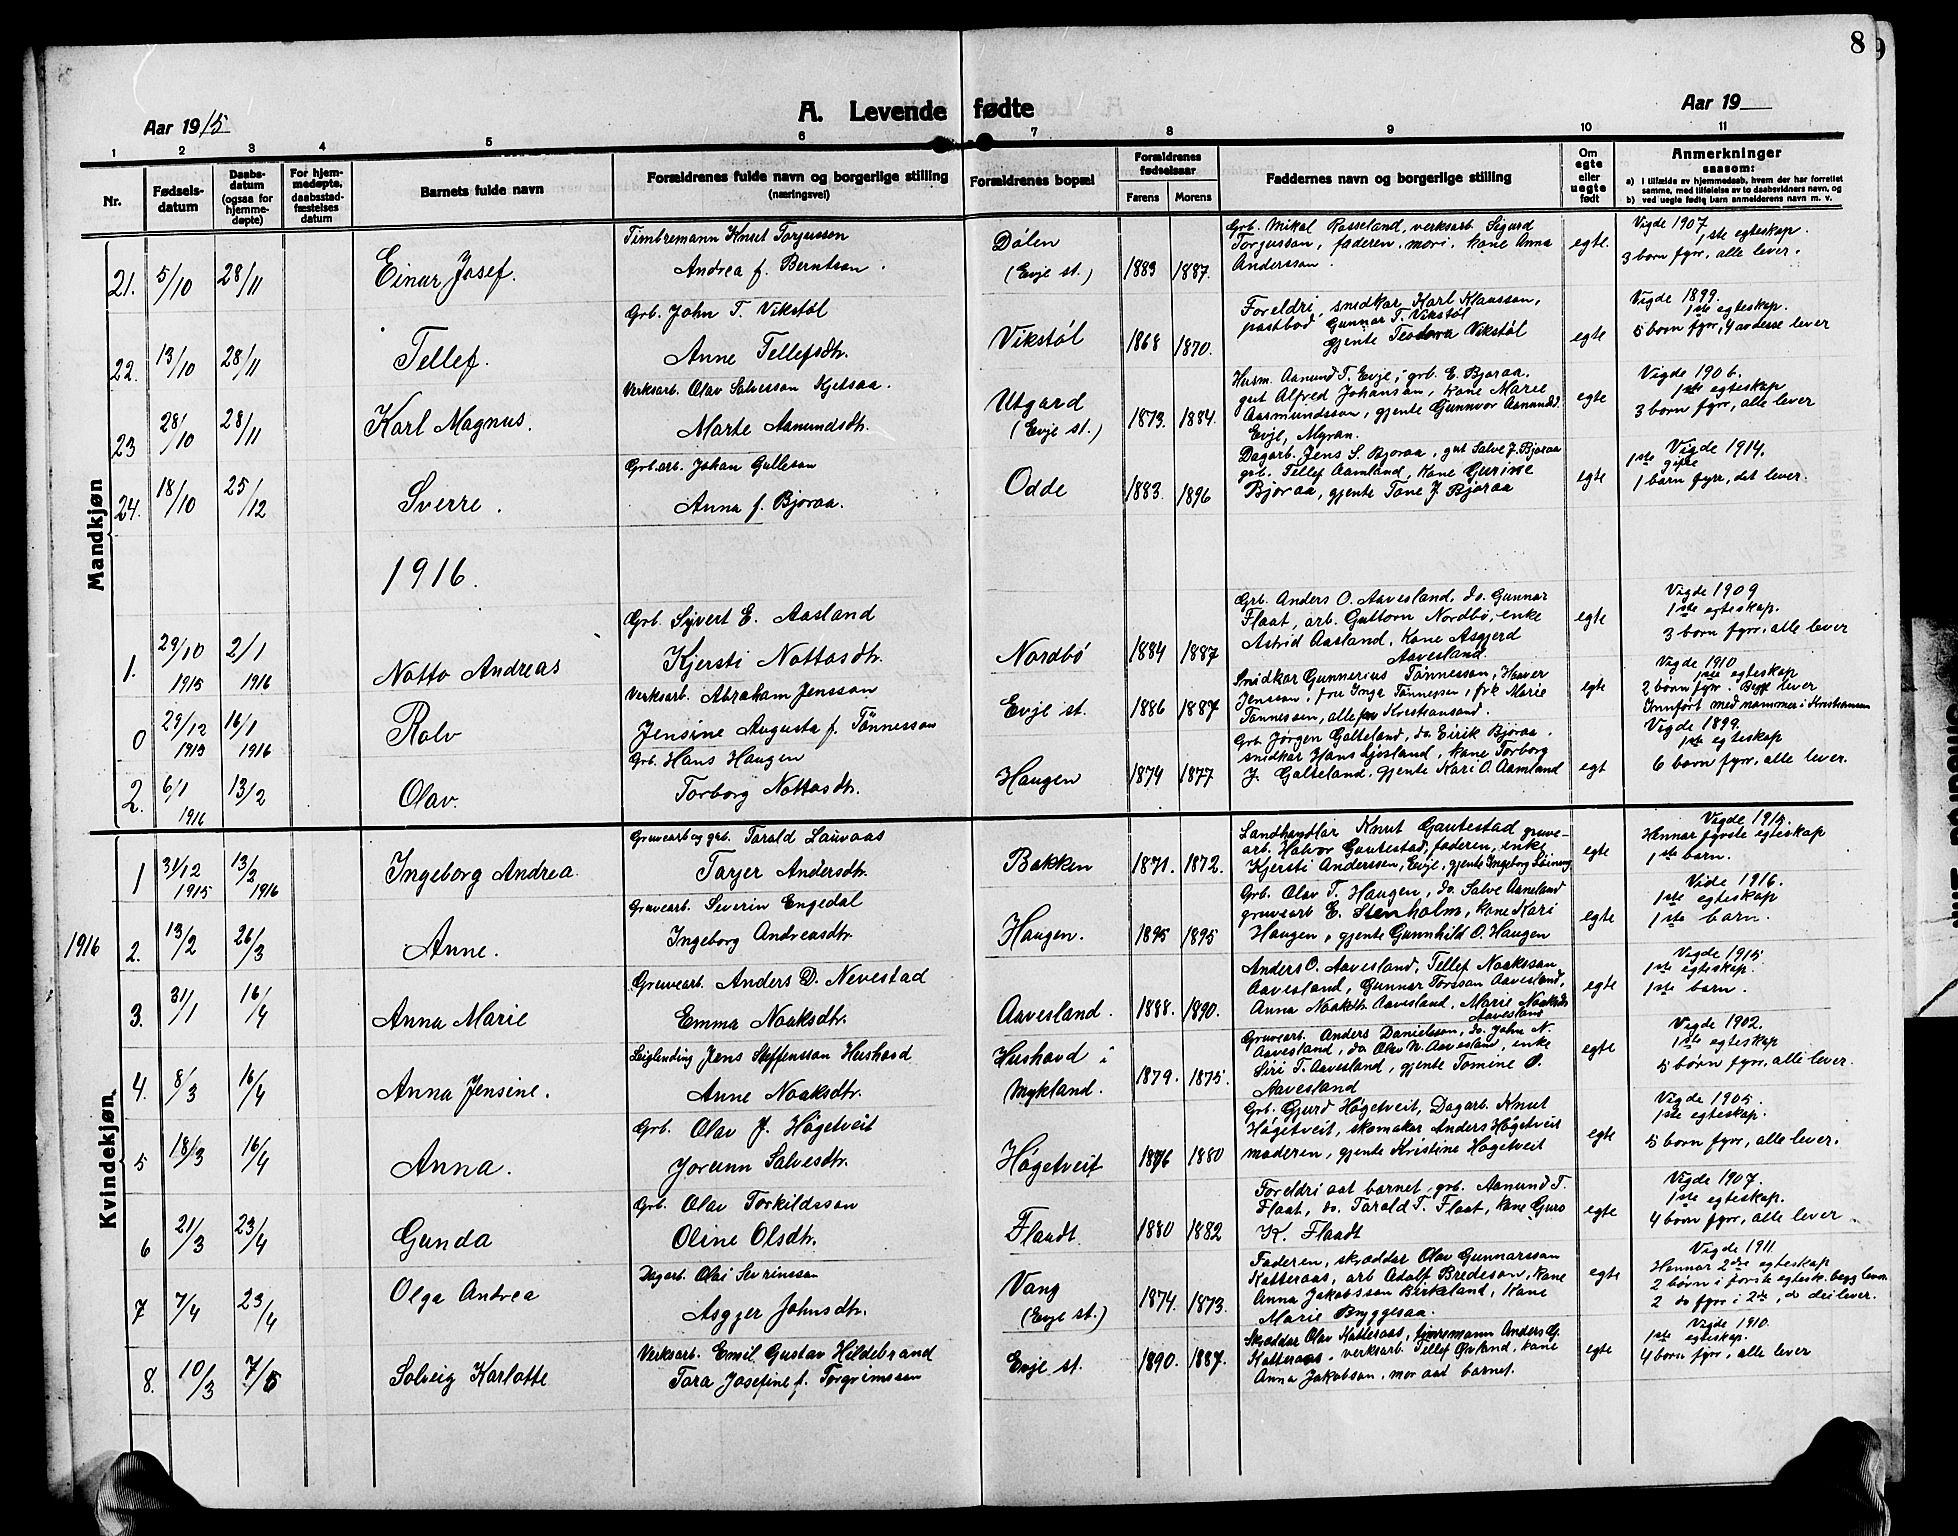 8
9
A. Levende fødte
Aar 1915
Aar 19
1 2 3 4 5 6 7 8 9 10 11
Nr.
Fødsels-
datum
Daabs-
datum
(ogsaa for
hjemme-
døpte)
For hjem-
medøpte,
daabsstad-
fæstelses
datum
Barnets fulde navn
Forældrenes fulde navn og borgerlige stilling
(næringsvei)
Forældrenes bopæl
Forældrenes
fødselsaar
Farens Morens
Faddernes navn og borgerlige stilling
Om
egte
eller
uegte
født
Anmerkninger
saasom:
a) I tilfælde av hjemmedaab, hvem der har forrettet
samme, med tilføielse av to daabsvidners navn, og
b) ved uegte fødte barn anmelderens navn m. v.
Mandkjøn
21. 5/10 28/11 Einar Josef.
Timbremann Knut Torjusson
Andrea f. Berntsen.
Dølen
(Evje st.)
1883 1887.
Grb. Mikal Rosseland, verksarb. Sigurd
Torjusson, faderen, mori, kane Anna
Andersson.
egte.
Vigde 1907
1ste egteskap.
3 born fyrr, alle lever.
22. 13/10 28/11 Tellef.
Grb. John T. Vikstøl
Anne Tellefsdtr.
Vikstøl
1868 1870.
Foreldri, snidkar Karl Klausson,
postbod Gunnar T. Vikstøl
gjente Teodora Vikstøl
egte
Vigde 1899.
1ste egteskap.
5 born fyrr, 4 av desse lever
23 28/10 28/11 Karl Magnus.
Verksarb. Olav Salvesson Kjetsaa.
Marte Aanundsdtr.
Utgard
(Evje st.)
1873. 1884.
Husm. Aanund T. Evje, grb. E. Bjoraa.
gut Alfred Johansen, kane Marie
Aasmundsson, gjente Gunnvor Aanundsd.
Evje, Myran.
egte
Vigde 1906.
1ste egteskap
3 born fyrr, alle lever
24. 18/10 25/12 Sverre.
Grb.arb. Johan Gulleson
Anna f. Bjoraa.
Odde
1883. 1896
Dagarb. Jens S. Bjoraa, gut Salve J. Bjoraa
grb. Tellef Aamland, kane Gurine
Bjoraa, gjente Tone J. Bjoraa
egte
Vigde 1914.
1ste gifte
1 barn fyrr, det lever.
1916.
1. 29/10 1915 2/1 1916 Notto Andreas
Grb. Syvert E. Aasland
Kjersti Nottosdtr.
Nordbø
1884 1887
Grb. Anders O. Aavesland, do. Gunnar
Flaat, arb. Guttorm Nordbø, enke
Astrid Aasland, Kane Asgjerd
Aavesland
egte
Vigde 1909
1ste egteskap.
3 born fyrr, alle lever
0 29/12 1915 16/1 1916 Rolv
Verksarb. Abraham Jensson
Jensine Augusta f. Tønnesson
Evje st.
1886 1887
Snidkar Gunnerius Tønnesson,
Jensson, frøe Inga Tønnessen, frk Marie
Tønnessen, alle fra Kristiansand.
egte
Vigde 1910
1ste egteskap
2 born fyrr. Begge lever
Innført med nommer i Kristiansand
2. 6/1 1916 13/2 Olav.
Grb. Hans Haugen
Torborg Nottosdtr.
Haugen
1874 1877
Grb. Jørgen Galteland, do Eirik Bjoraa.
snidkar Hans Ljosland, kane Torborg
J. Galteland, gjente Kari O. Aamland
egt
Vigde 1899.
1ste egteskap
6 born fyrr, alle lever.
Kvindekjøn
1 31/12 1915 13/3 1916 Ingeborg Andrea
Gruvearb og grb. Tarald Lauvaas
Tarjer Andersdtr.
Bakken
1871. 1872.
Landhandlar Knut Gautestad gruve-
arb. Halvor Gautestad, faderen, enke
Kjersti Anderssen, Evje, gjente Ingeborg
egte
Vigde 1915.
Hennar fyrste egteskap
1ste barn.
1916
2. 13/2 26/3 Anne.
Gruvearb. Severin Engedal
Ingeborg Andreasdtr.
Haugen.
1895 1895
Grb. Olav T. Haugen, do. Salve Aaneland
gruvearb E. Stenholm, kane Kari
Haugen, gjente Gunnhild O. Haugen
egte
Vide 1916.
1ste egteskap
1ste barn.
3. 31/1 16/4 Anna Marie
Gruvearb. Anders D. Nevestad
Emma Noaksdtr.
Aavesland.
1888. 1890.
Anders O. Aavesland, Tellef Noaksson
Aavesland, Gunnar Torsson Aavesland,
Anna Noaksdtr. Aavesland, Marie Noaksdtr
Aavesland
egte
Vigde 1915.
1ste egteskap.
1ste barn.
4. 8/3 16/4 Anna Jensine.
Leiglending Jens Steffensson Hushovd
Anne Noaksdtr.
Hushovd i
Mykland.
1879. 1875.
Gruvearb. Anders Danielsson, do. John N.
Aavesland, do Olav N. Aavesland, enke
Siri T. Aavesland, gjente Tomine O.
Aavesland
egte
Vigde 1902.
1ste egteskap
5 børn fyrr, alle lever.
5 18/3 16/4 Anna.
Grb. Olav J. Høgetveit
Jorunn Salvesdtr.
Høgetveit
1876 1880
Grb. Gjurd Høgetveit, Dagarb. Knut
Høgetveit, skomakar Anders Høgetveit
moderen, gjente Kristine Høgetveit
egte
Vigde 1905.
1ste egteskap.
5 born fyrr, alle lever.
6 21/3 23/4 Gunda
Grb. Olav Torkildsson
Oline Olsdtr.
Flaadt.
1880 1882
Foreldri aat barnet, grb. Aanund T.
Flaat, do. Tarald T. Flaat, kane Guro
K. Flaadt
egte
Vigde 1907.
1ste egteskap.
4 born fyrr, alle lever.
7 7/4 23/4 Olga Andrea
Dagarb. Olai Sevrinsson
Asgjer Johnsdtr.
Vang
(Evje st.)
1874. 1873.
Faderen, skræddar Olav Gunnarsson
Katteraas, arb Adolf Bredeson, kane
Anna Jakobsson Birkeland, Kane
Marie Byggesaa.
egte
Vigde 1911.
Hannar 2dre egteskap
2 børn i forste egtesk. begg lever.
2 do fyrr i 2dr, do dei lever.
8. 10/3 7/5 Solveig Karlotte
Verksarb. Emil Gustav Hildebrand
Tora Josefine f. Torgrimsson
Evje st.
1890. 1887.
Skræddar Olav Katteraas, timremann Anders G.
Katteraas, verksarb. Tellef kane
Anna Jakobson, mor aat barnet.
egte
Vigde 1910.
1ste egteskap.
4 born fyrr, alle lever